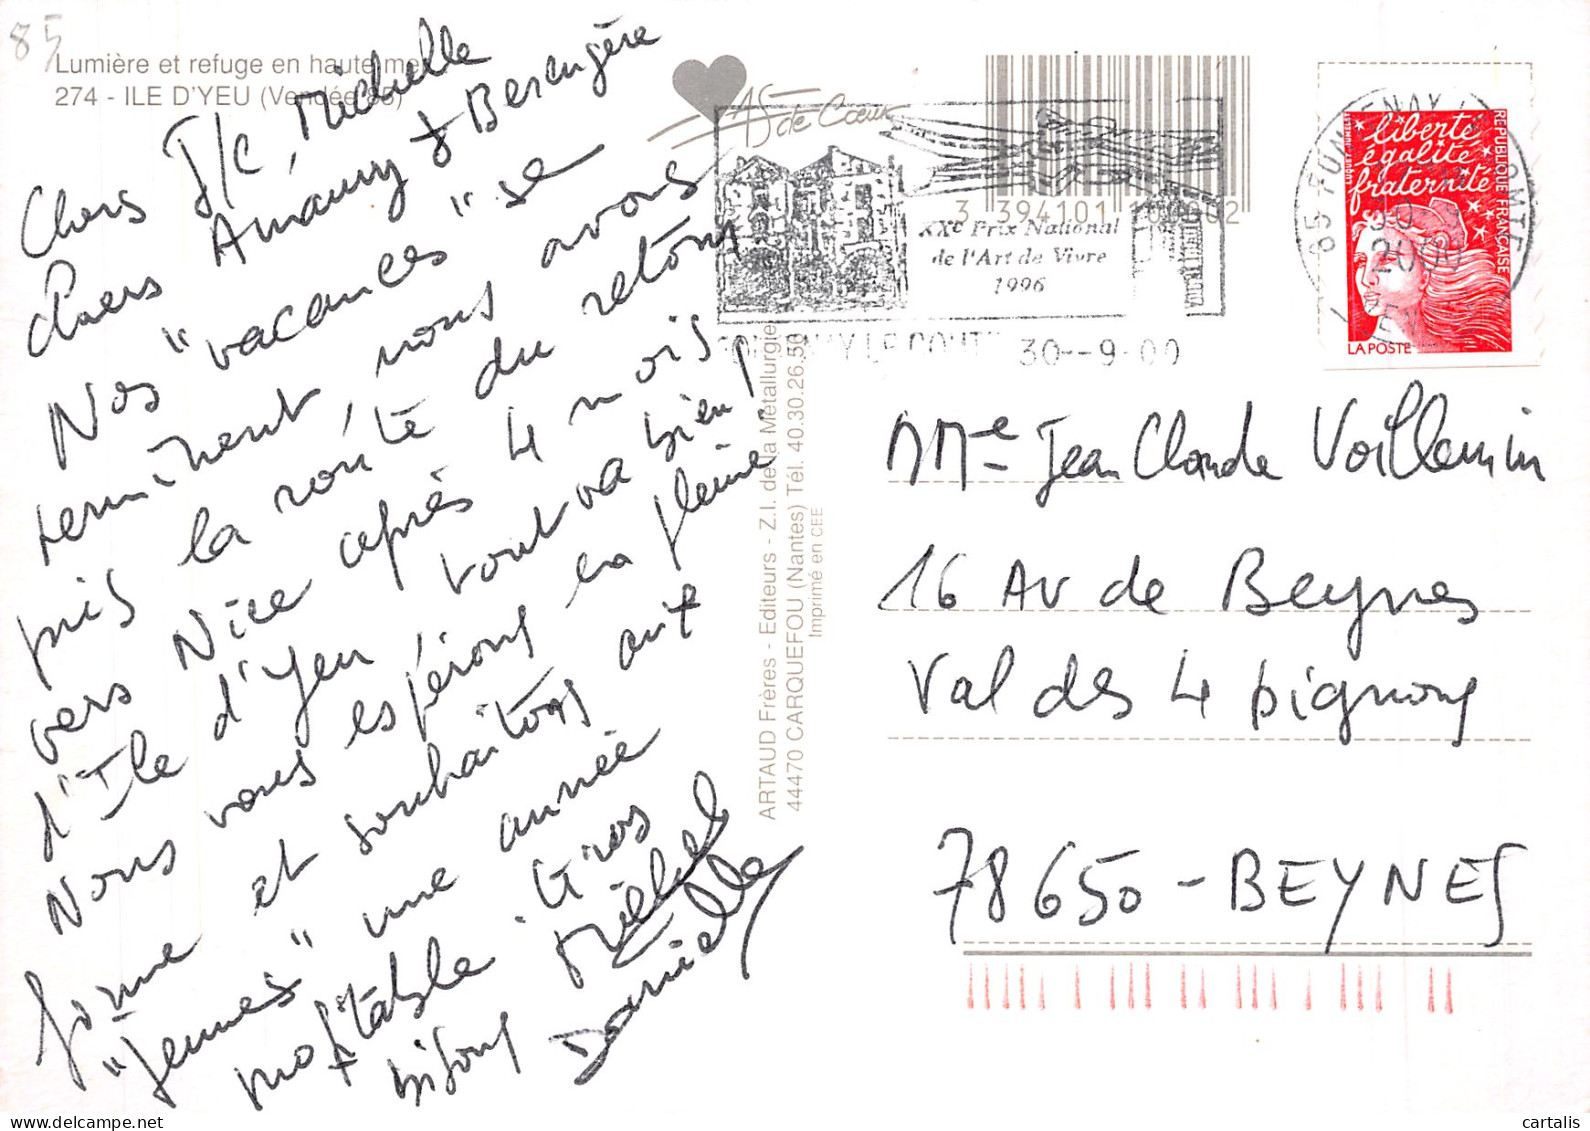 85
Lumière et refuge en haute mer
274 - ILE D'YEU (Vendée 85)
Chers J/C Michelle
chers Amaury & Berengère
Nos "vacances" se
terminent, nous avons
pris la route du retour
vers Nice après 4 mois
d'Ile d'Yeu, tout va bien !
Nous vous espérons en pleine
forme et souhaitons aux
"jeunes" une année
profitable. Gros
bisous Michel
Danielle
As de Cœur
3 394101
XXe Prix National
de l'Art de Vivre
1996
30--9-00
85 FONTENAY LE COMTE
30
2000
liberté
égalité
fraternité
RÉPUBLIQUE FRANÇAISE
LA POSTE
ARTAUD Frères - Editeurs - Z.I. de la Métallurgie
44470 CARQUEFOU (Nantes) Tél. 40.30.26.50
Imprimé en CEE
MMe Jean Claude Voillemin
16 Av de Beynes
Val des 4 pignons
78650 - BEYNES
cartalis
delcampe.net